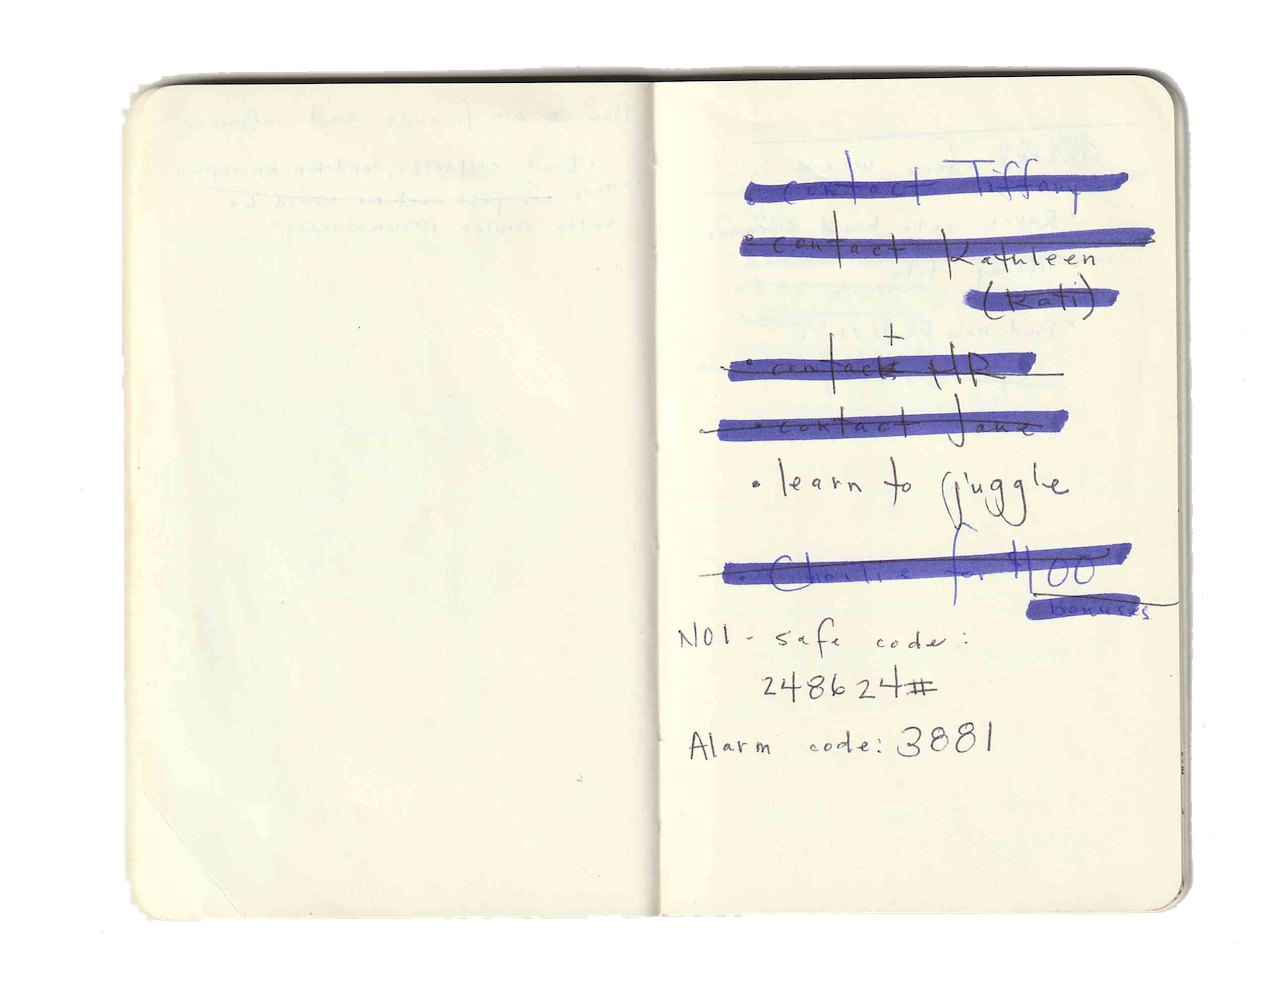 • contact Tiffany
• contact Kathleen
(Kati)
• contact HR
• contact Jane
• learn to juggle
• Charlie's for $100
bonuses
NO1 - safe code:
248624#
Alarm code: 3881